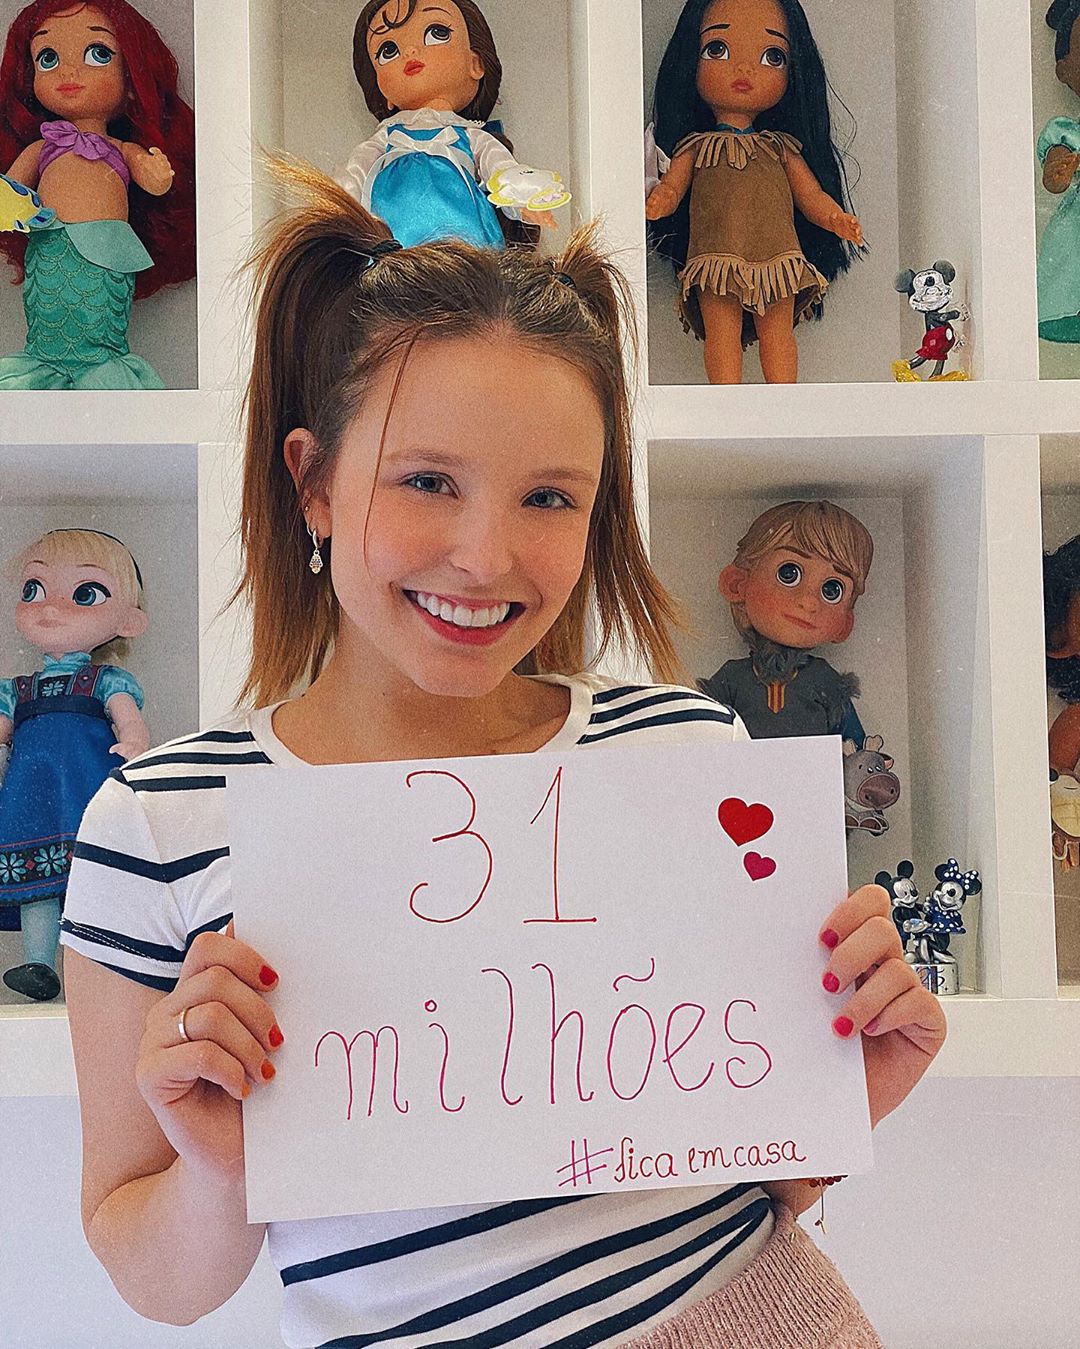 31
milhões
#fica em casa